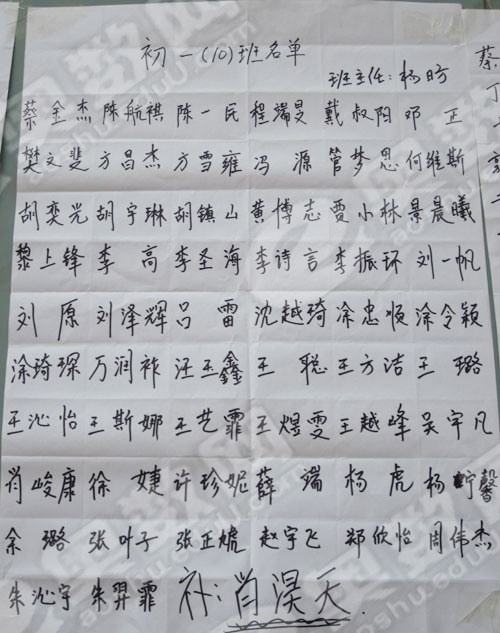 初一(10)班名单
班主任:杨昉
蔡金杰 陈航祺 陈一民 程端旻 戴叔阳 邓正
樊文斐 方昌杰 方雪雍 冯源 管梦恩 何维斯
胡奕光 胡宇琳 胡镇山 黄博志 贾小林 景晨曦
黎上锋 李高 李圣海 李诗言 李振环 刘一帆
刘原 刘泽辉 吕雷 沈越琦 涂忠顺 涂令颖
涂琦琛 万润祚 汪玉鑫 王聪 王方洁 王璐
王沁怡 王斯娜 王艺霏 王煜雯 王越峰 吴宇凡
肖峻康 徐婕 许珍妮 薛端 杨虎 杨馨
余璐 张叶子 张正彪 赵宇飞 郑欣怡 周伟杰
朱沁宇 朱羿霏 补:肖淏天
蔡